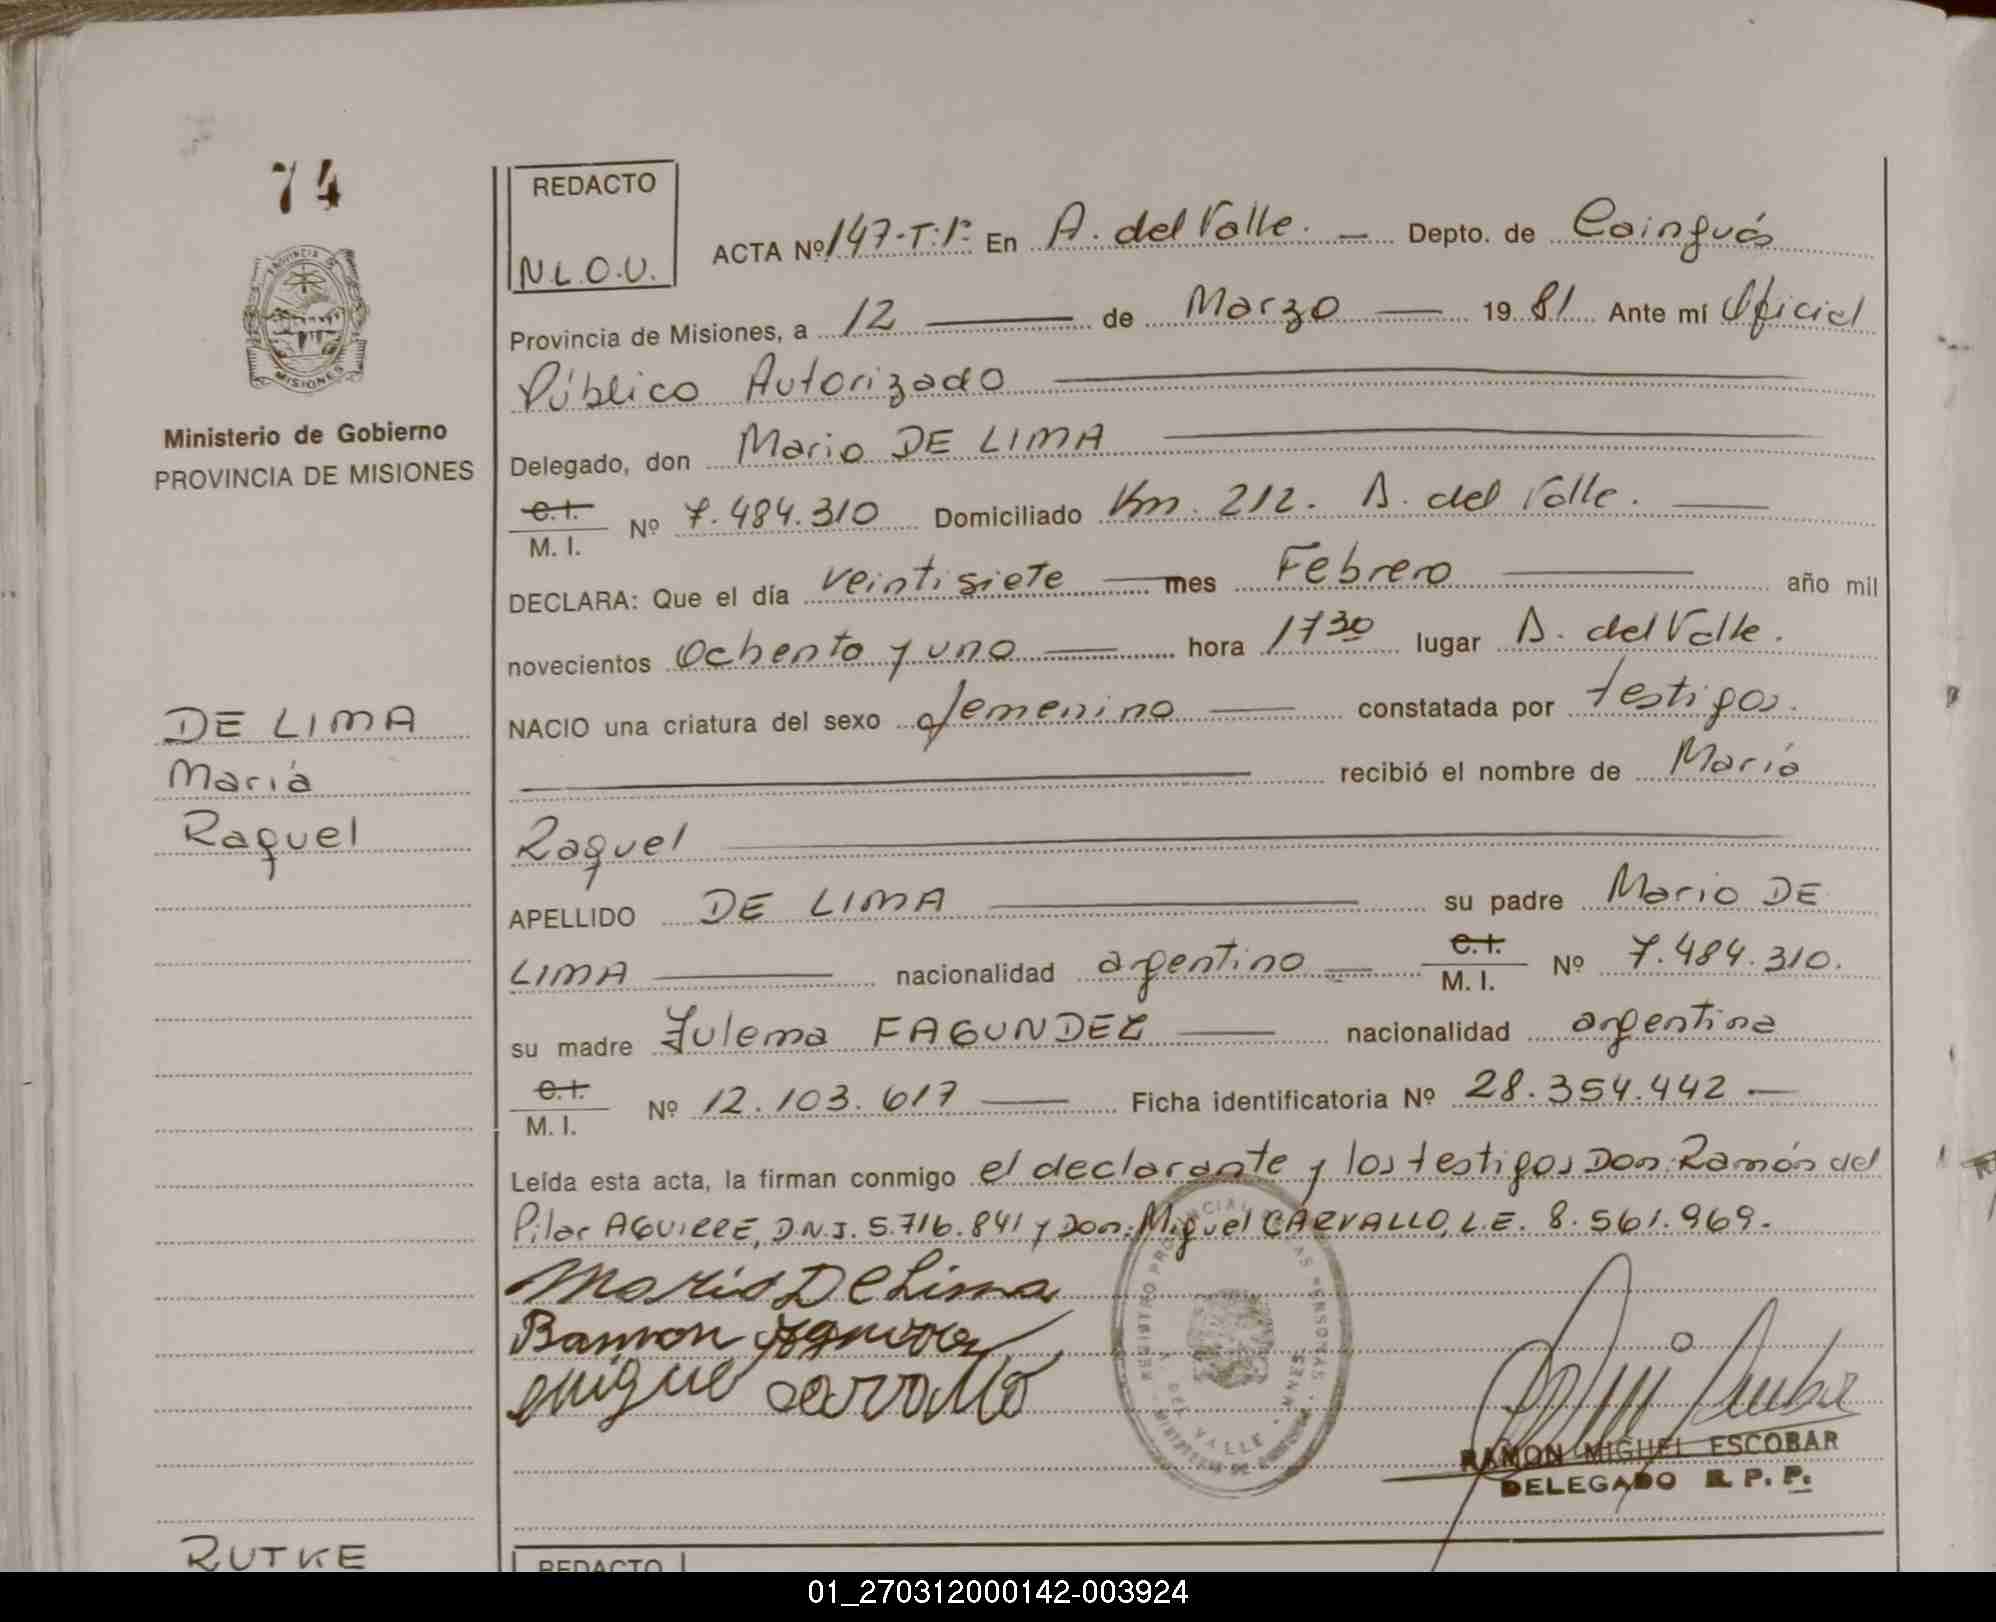 74
PROVINCIA DE
MISIONES
Ministerio de Gobierno
PROVINCIA DE MISIONES
DE LIMA
María
Raquel
RUTKE
REDACTO
N.L.O.U.
ACTA Nº 147-T:1º En A. del Valle. — Depto. de Cainguás
Provincia de Misiones, a 12 — de Marzo — 19 81 Ante mí Oficial
Público Autorizado —
Delegado, don Mario DE LIMA —
C.I. / M. I. Nº 7.484.310 Domiciliado Km. 212. A. del Valle. —
DECLARA: Que el día veintisiete — mes Febrero — año mil
novecientos ochenta y uno — hora 17 30 lugar A. del Valle.
NACIO una criatura del sexo femenino — constatada por testigos.
— recibió el nombre de María
Raquel —
APELLIDO DE LIMA — su padre Mario DE
LIMA — nacionalidad argentino — C.I. / M. I. Nº 7.484.310.
su madre Zulema FAGUNDEZ — nacionalidad argentina
C.I. / M. I. Nº 12.103.617 — Ficha identificatoria Nº 28.354.442 —
Leída esta acta, la firman conmigo el declarante y los testigos Don: Ramón del
Pilar AGUIRRE, D.N.I. 5.716.841 y Don: Miguel CARVALLO, L.E. 8.561.969.
Mario De Lima
Ramon Aguirre
Miguel Carvallo
REGISTRO PROVINCIAL DE LAS PERSONAS
A. DEL VALLE - MNES
RAMON MIGUEL ESCOBAR
DELEGADO R. P. P.
REDACTO
01_270312000142-003924